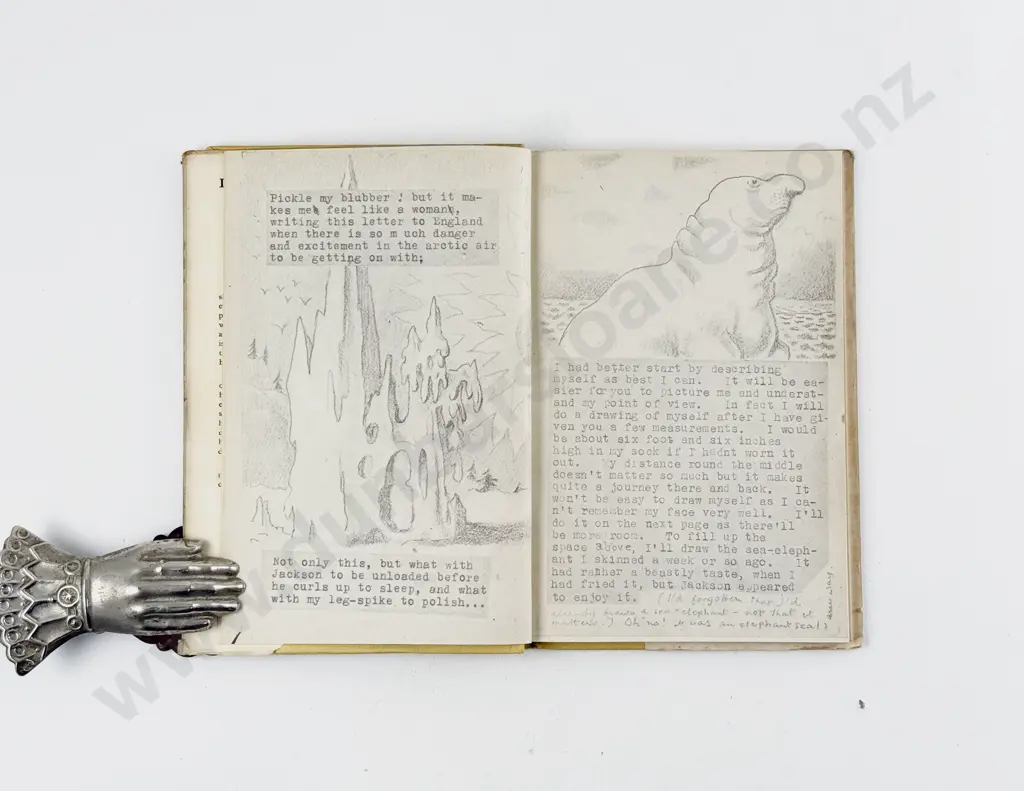 Pickle my blubber ! but it ma-
kes me feel like a woman,
writing this letter to England
when there is so m uch danger
and excitement in the arctic air
to be getting on with;
Not only this, but what with
Jackson to be unloaded before
he curls up to sleep, and what
with my leg-spike to polish...
I had better start by describing
myself as best I can. It will be ea-
sier for you to picture me and underst-
and my point of view. In fact I will
do a drawing of myself after I have gi-
ven you a few measurements. I would
be about six foot and six inches
high in my sock if I hadnt worn it
out. My distance round the middle
doesn't matter so much but it makes
quite a journey there and back. It
won't be easy to draw myself as I ca-
n't remember my face very well. I'll
do it on the next page as there'll
be more room. To fill up the
space above, I'll draw the sea-eleph-
ant I skinned a week or so ago. It
had rather a beastly taste, when I
had fried it, but Jackson appeared
to enjoy it. (I'd forgotten that I'd
already drawn a sea-elephant - not that it
matters.) Oh no! it was an elephant seal!
www.dunbarsloane.co.nz